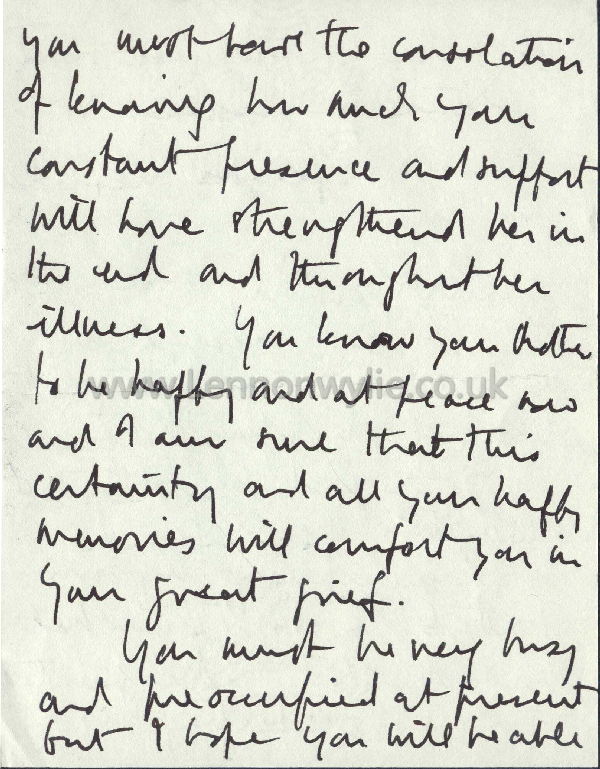 you must have the consolation
of knowing how much your
constant presence and support
will have strengthened her in
the end and throughout her
illness. You know your Mother
to be happy and at peace now
www.Lennonwylie.co.uk
and I am sure that this
certainty and all your happy
memories will comfort you in
your great grief.
You must be very busy
and preoccupied at present
but I hope you will be able